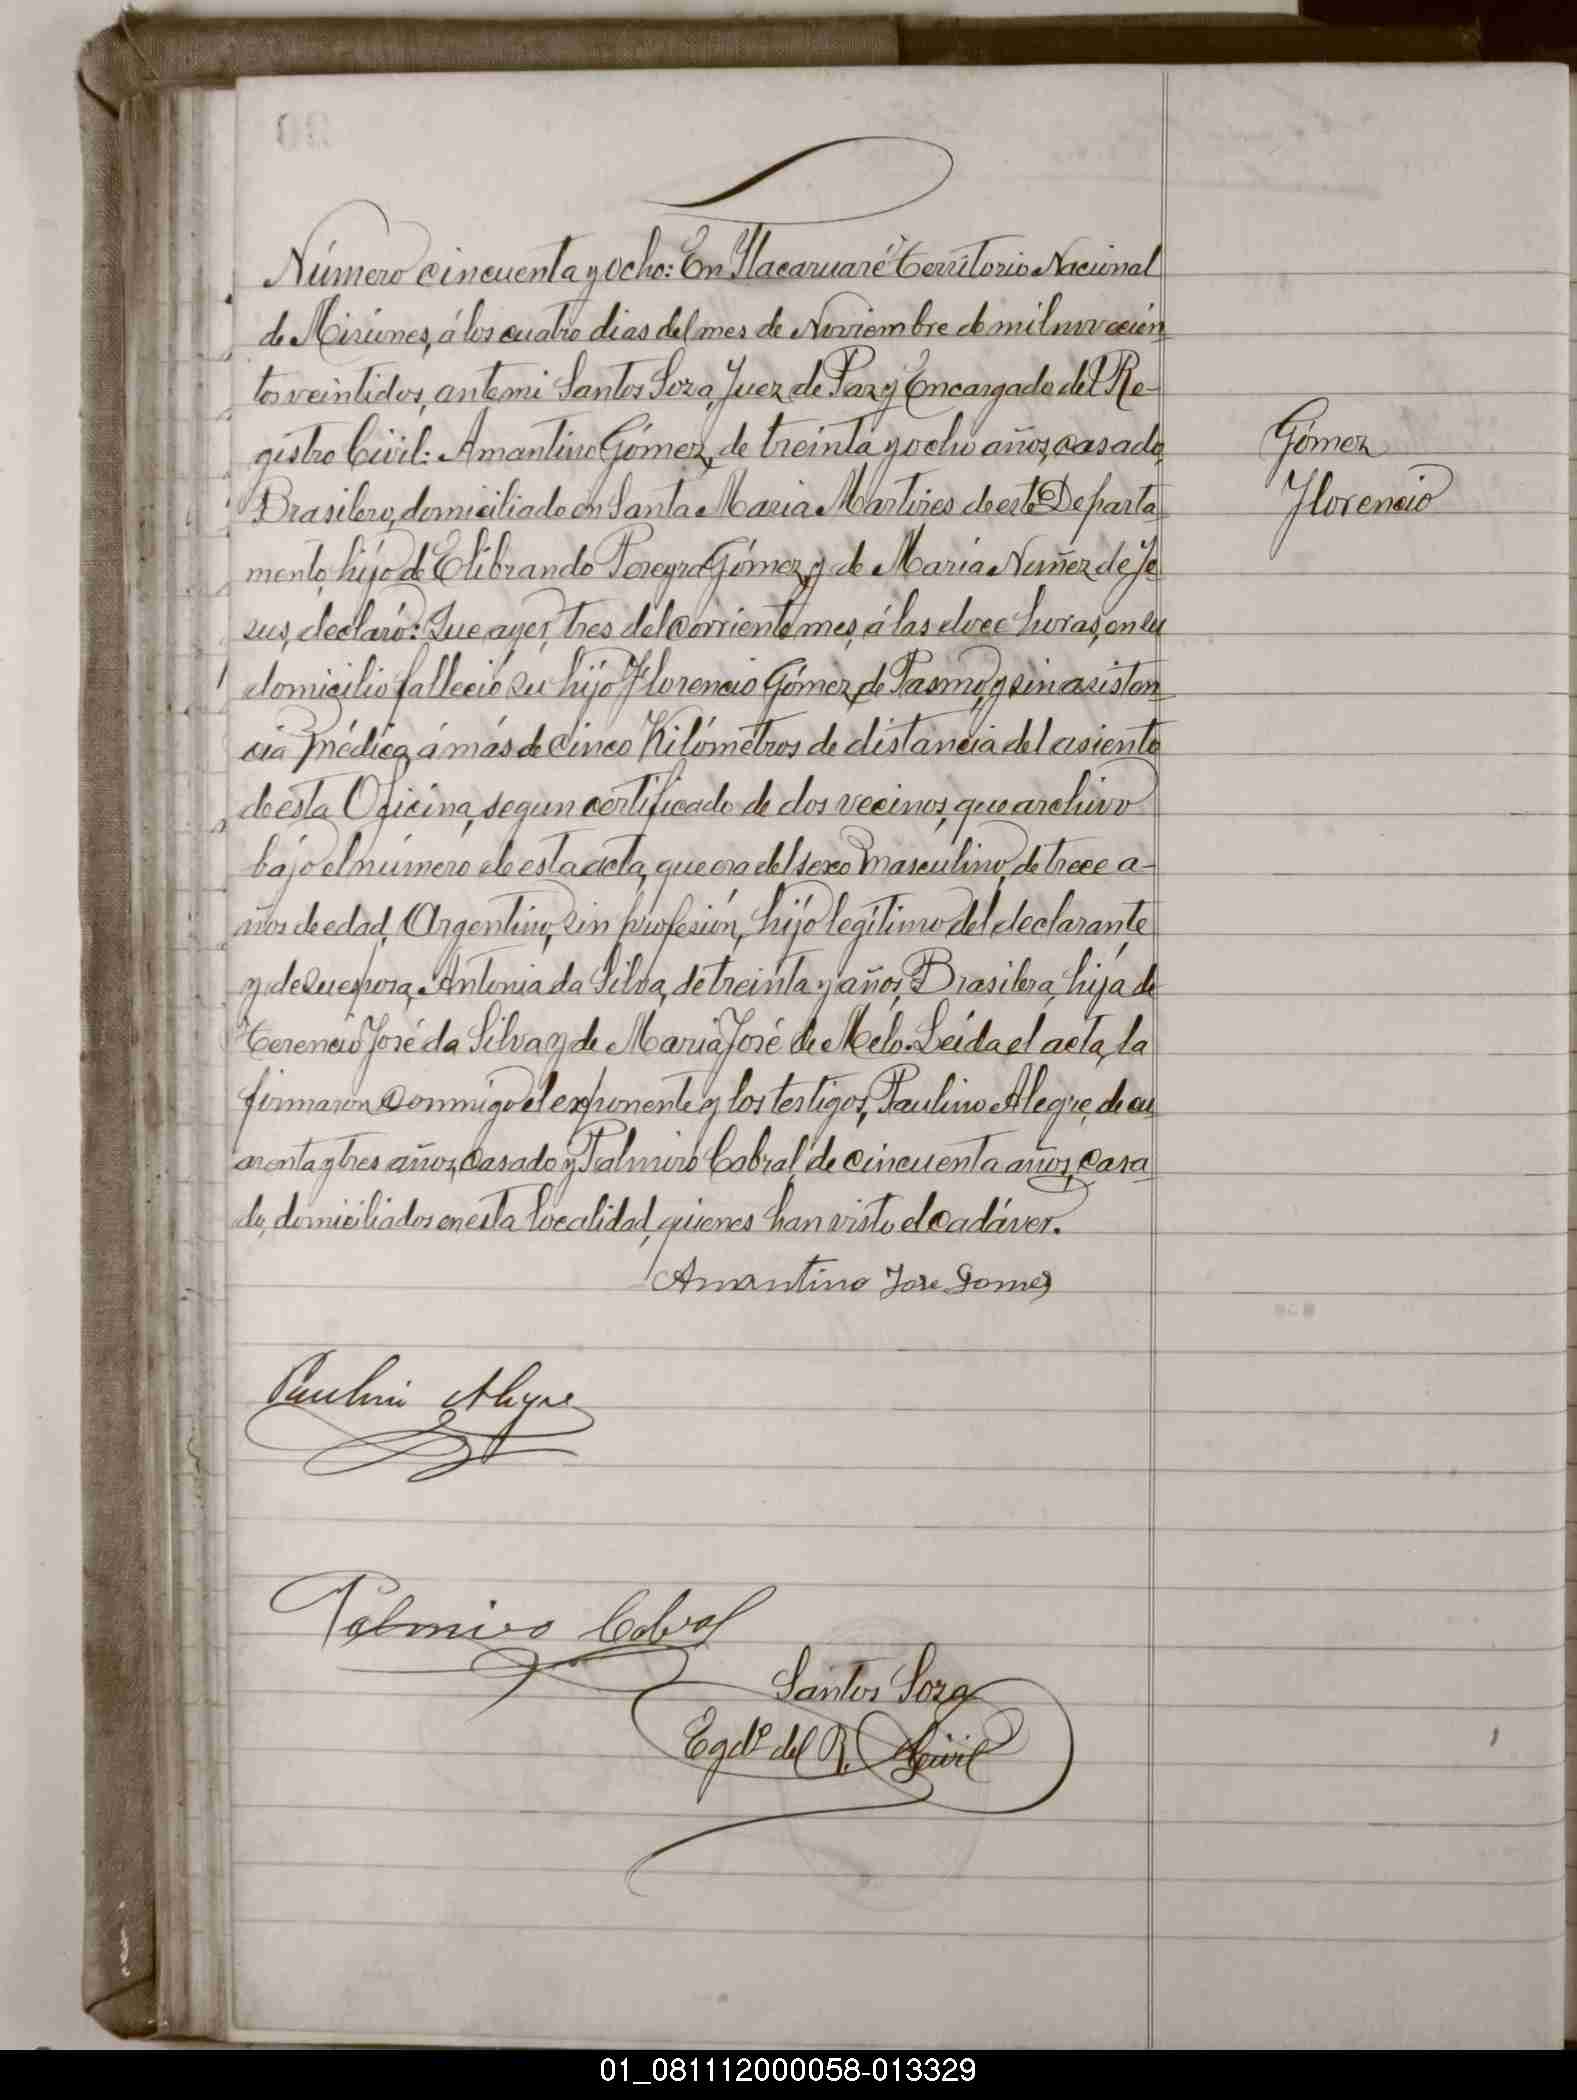 Número cincuenta y ocho: En Itacaruaré Territorio Nacional
de Misiones, á los cuatro dias del mes de Noviembre de mil novecien
tos veintidos, ante mi Santos Soza, Juez de Paz y Encargado del Re-
gistro Civil: Amantino Gómez, de treinta y ocho años, casado,
Brasilero, domiciliado en Santa Maria Martires de este Departa
mento, hijo de Elibrando Pereyra Gómez, y de Maria Nuñez de Je
sus, declaró: Que ayer, tres del corriente mes, á las doce horas, en su
domicilio falleció su hijo Florencio Gómez, de Pasmo, y sin asisten
cia médica, á más de cinco Kilómetros de distancia del asiento
de esta Oficina, segun certificado de dos vecinos, que archivo
bajo el número de esta acta, que era del sexo masculino, de trece a-
ños de edad, Argentino, sin profesión, hijo legítimo del declarante
y de su esposa, Antonia da Silva, de treinta y años, Brasilera, hija de
Terencio José da Silva y de Maria José de Melo. Leida el acta, la
firmaron conmigo el exponente y los testigos, Paulino Alegre, de cu
arenta y tres años, casado y Palmiro Cabral de cincuenta años, casa
do, domiciliados en esta localidad, quienes han visto el cadáver.
Gómez
Florencio
Amantino Jose Gomes
Paulino Alegre
Palmiro Cabral
Santos Soza
Egdº del R. Civil
01_081112000058-013329